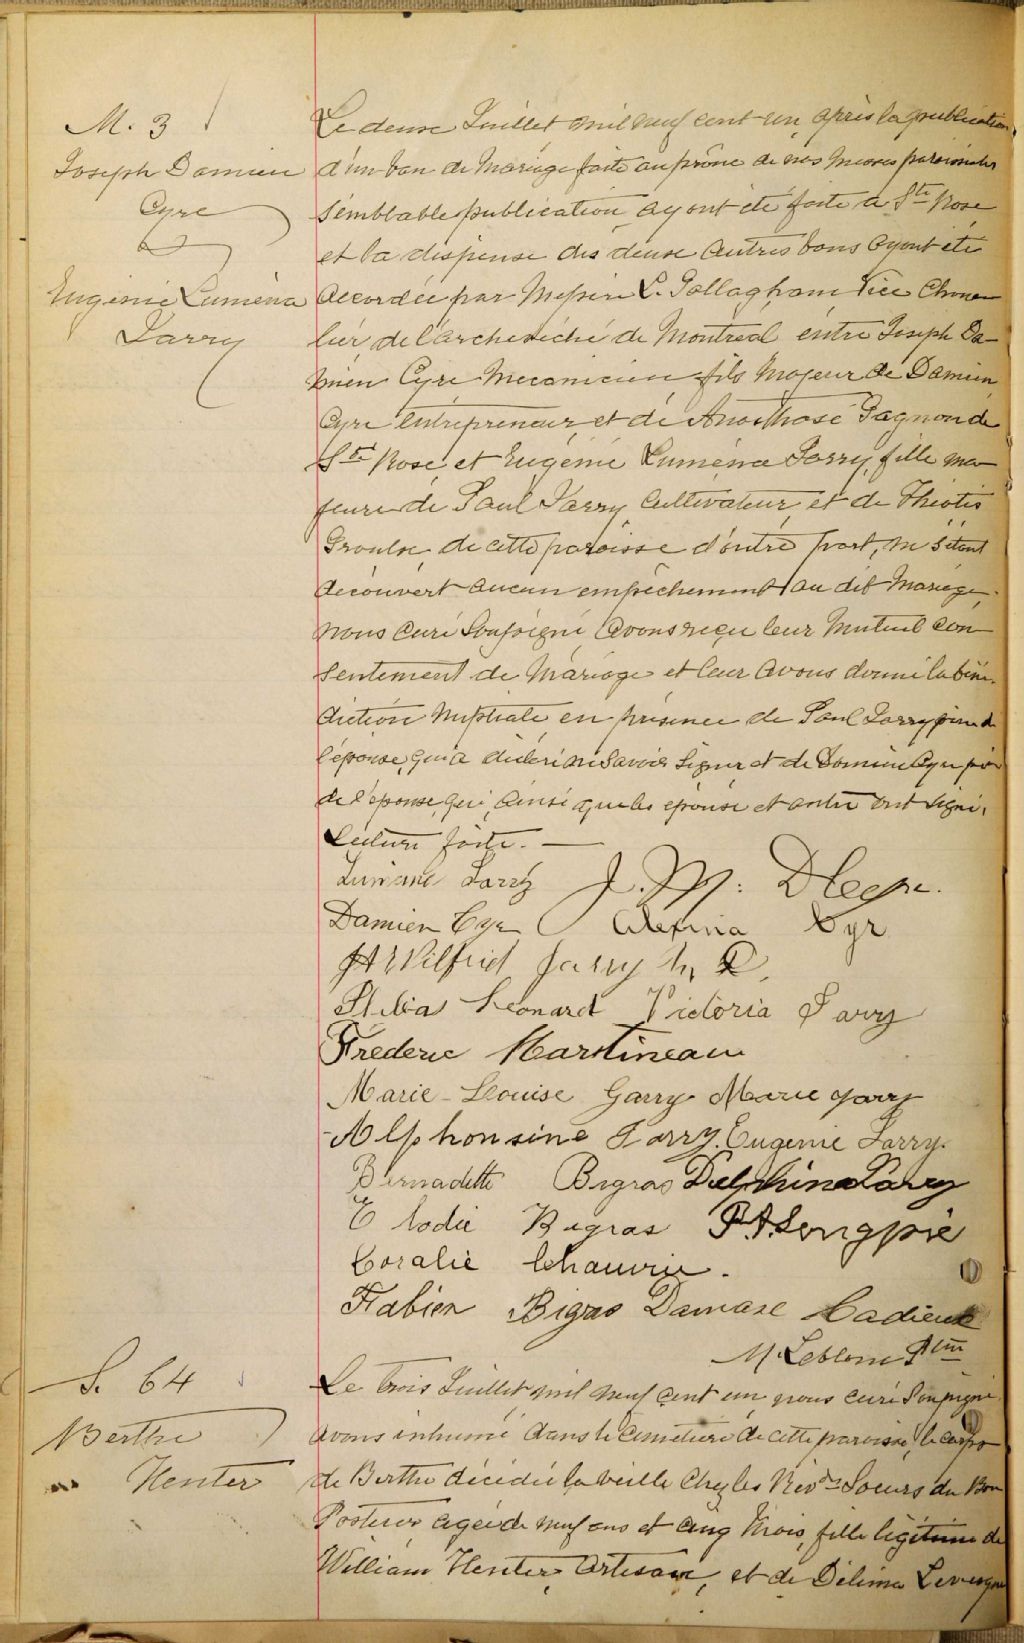 M. 3
Joseph Damien
Cyre
Eugénie Luména
Jarry
Le deux Juillet mil neuf cent un après la publication
d'un ban de Mariage faite au prône de nos Messes paroissiales
semblable publication ayant été faite à Ste Rose
et la dispense des deux autres bans ayant été
accordée par Messire L. Gallagham Vice Chance
lier de l'archevêché de Montreal entre Joseph Da-
mien Cyre Mecanicien fils Majeur de Damien
Cyre entrepreneur et de Gagnon de
Ste Rose, et Eugénie Luména Jarry fille ma-
jeure de Paul Jarry Cultivateur, et de Théotis
Groulx de cette paroisse d'autre part, ne s'étant
découvert aucun empêchement au dit Mariage,
nous curé Soussigné avons reçu leur Mutuel con-
sentement de Mariage et leur avons donné la béné-
diction Nuptiale en présence de Paul Jarry père de
l'épouse, qui a déclaré ne savoir signer et de Damien Cyre père
de l'épouse, qui, ainsi que les épouse et autre ont signé.
Lecture faite. —
Jarry J. M. D. Cyr.
Damien Cyr Alexina Cyr
Wilfrid Jarry M D.
Léonard Victoria Jarry
Fréderic Martineau
Marie-Louise Garry Marie Jarry
Alphonsine Jarry. Eugenie Jarry.
Bernadette Bigras Delphina Jarry
Elodie Bigras P. A. Longpré
Coralie
Fabien Bigras Damase Cadieux
M. Leblanc Ptre
S. 64
Berthe
Henter
Le trois Juillet mil neuf cent un nous curé Soussigné
avons inhumé dans le Cimetière de cette paroisse, le corps
de Berthe décédée la veille chez les Révdes Soeurs du Bon
Pasteur agée de neuf ans et cinq Mois, fille légitime de
William Henter, Artisan, et de Délima Levesque